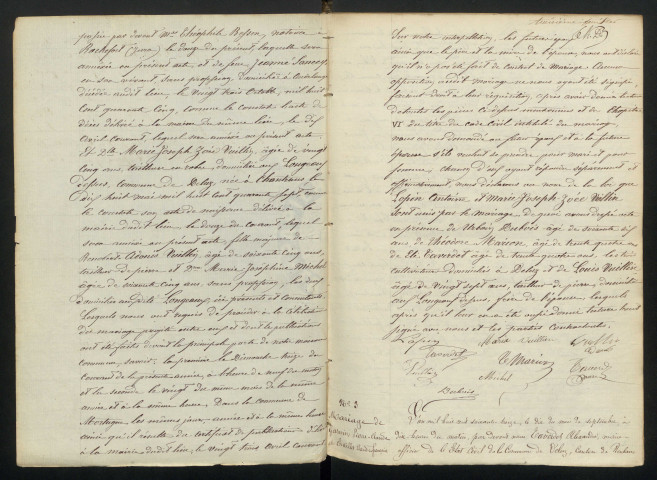 passée par devant Mre Théophile Besson, notaire à
Rochefort (Jura) le douze du présent, laquelle sera
annexée au présent acte et de feue Jeanne
en son vivant, sans profession, domiciliée à
décédée audit lieu, le vingt trois Octobre, mil huit
cent quarante cinq, comme le constate l'acte de
décès délivré à la mairie du même lieu, le dix
avril courant, lequel sera annexé au présent acte
Et Dlle Marie Joseph Zoée Vuillin, âgée de vingt
cinq ans, tailleuse en robes, domiciliée aux Longeaux
dessus, commune de Deluz, née à
dix huit mai mil huit cent quarante sept
le constate son acte de naissance délivré à la
mairie dudit lieu le douze du courant, lequel
sera annexé au présent acte, fille majeure de
Vuillin, âgé de soixante cinq ans,
tailleur de pierre et de Marie Joséphine Michel
âgée de soixante cinq ans, sans profession, les deux
domiciliés auxdits Longeaux, ici présents et consentants
Lesquels nous ont requis de procéder à la célébration
du mariage projeté entre eux et dont les publications
ont été faites devant la principale porte de notre maison
commune, savoir, la première le Dimanche treize du
courant de la présente année, à l'heure de neuf du matin
et la seconde le vingt du même mois de la même
année, et à la même heure. Dans la commune de
les mêmes jours, année et à la même heure
ainsi qu'il résulte du certificat de publication délivré
à la mairie dudit lieu, le vingt trois avril courant
Sur notre interpellation, les futurs époux
ainsi que le père et la mère de l'épouse, nous ont déclaré
qu'il n'a pas été fait de contrat de mariage. Aucune
opposition audit mariage ne nous ayant été signifiée,
faisant droit à leur réquisition, après avoir donné lecture
de toutes les pièces ci-dessus mentionnées et du Chapitre
VI du titre du code Civil intitulé du mariage
nous avons demandé au futur époux et à la future
épouse s'ils veulent se prendre pour mari et pour
femme, chacun d'eux ayant répondu séparément et
affirmativement, nous déclarons au nom de la loi que
et Marie Joseph Zoée Vuillin
sont unis par le mariage. De quoi avons dressé acte
en présence de Dubois, âgé de soixante six
ans, de Théodore Marion, âgé de trente quatre ans
de Taverdet âgé de trente quatre ans, les trois
cultivateurs domiciliés à Deluz et de Louis Vuillin
âgé de vingt sept ans, tailleur de pierre, domicilié
aux Longeaux dessus, frère de l'épouse, lesquels
après qu'il leur en a été aussi donné lecture l'ont
signé avec nous et les parties contractantes.
Marie Vuillin
Taverdet
Marion
Michel
Dubois
No 3
Mariage de
L'an mil huit cent soixante treize, le dix du mois de septembre, à
dix heures du matin, par devant nous Taverdet Alexandre, maire
officier de l'État Civil de la Commune de Deluz, Canton de Roulans